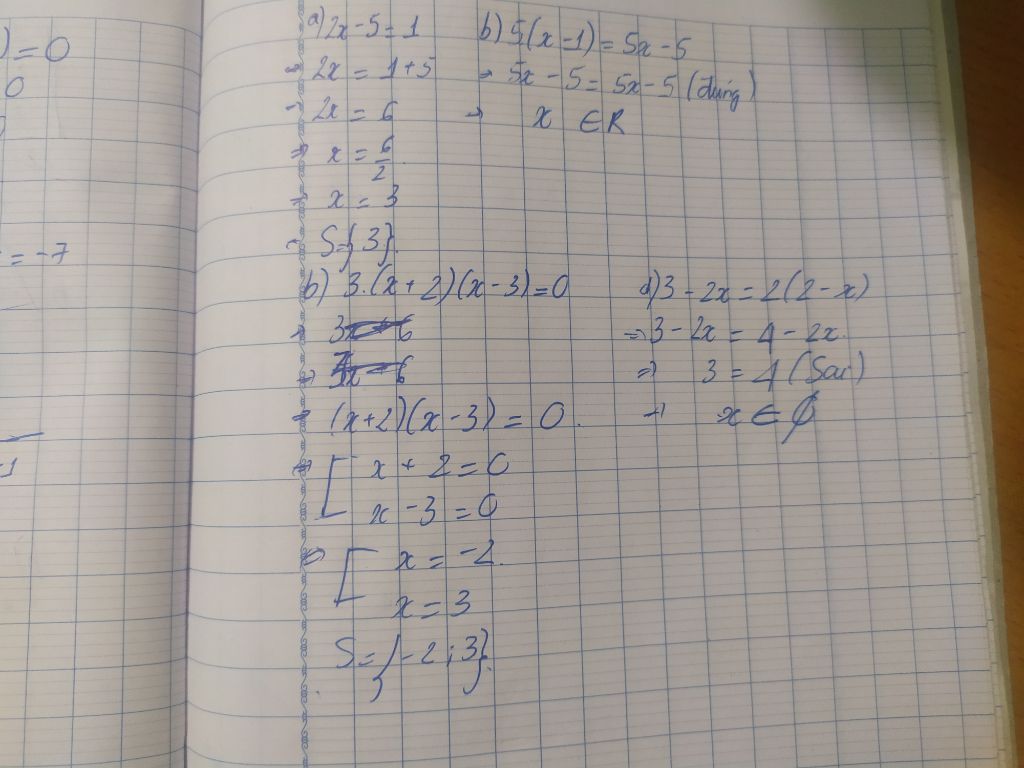 ) = 0
0
= -7
-1
a) 2x - 5 = 1
⇒ 2x = 1 + 5
⇒ 2x = 6
⇒ x = 6/2
⇒ x = 3
S = {3}
b) 5.(x - 1) = 5x - 5
⇒ 5x - 5 = 5x - 5 (đúng)
→ x ∈ R
b) 3.(x + 2)(x - 3) = 0
⇒ (x + 2)(x - 3) = 0.
⇒ [ x + 2 = 0
x - 3 = 0
⇒ [ x = -2.
x = 3
S = {-2 ; 3}.
d) 3 - 2x = 2(2 - x)
⇒ 3 - 2x = 4 - 2x.
⇒ 3 = 4 (Sai)
→ x ∈ ∅